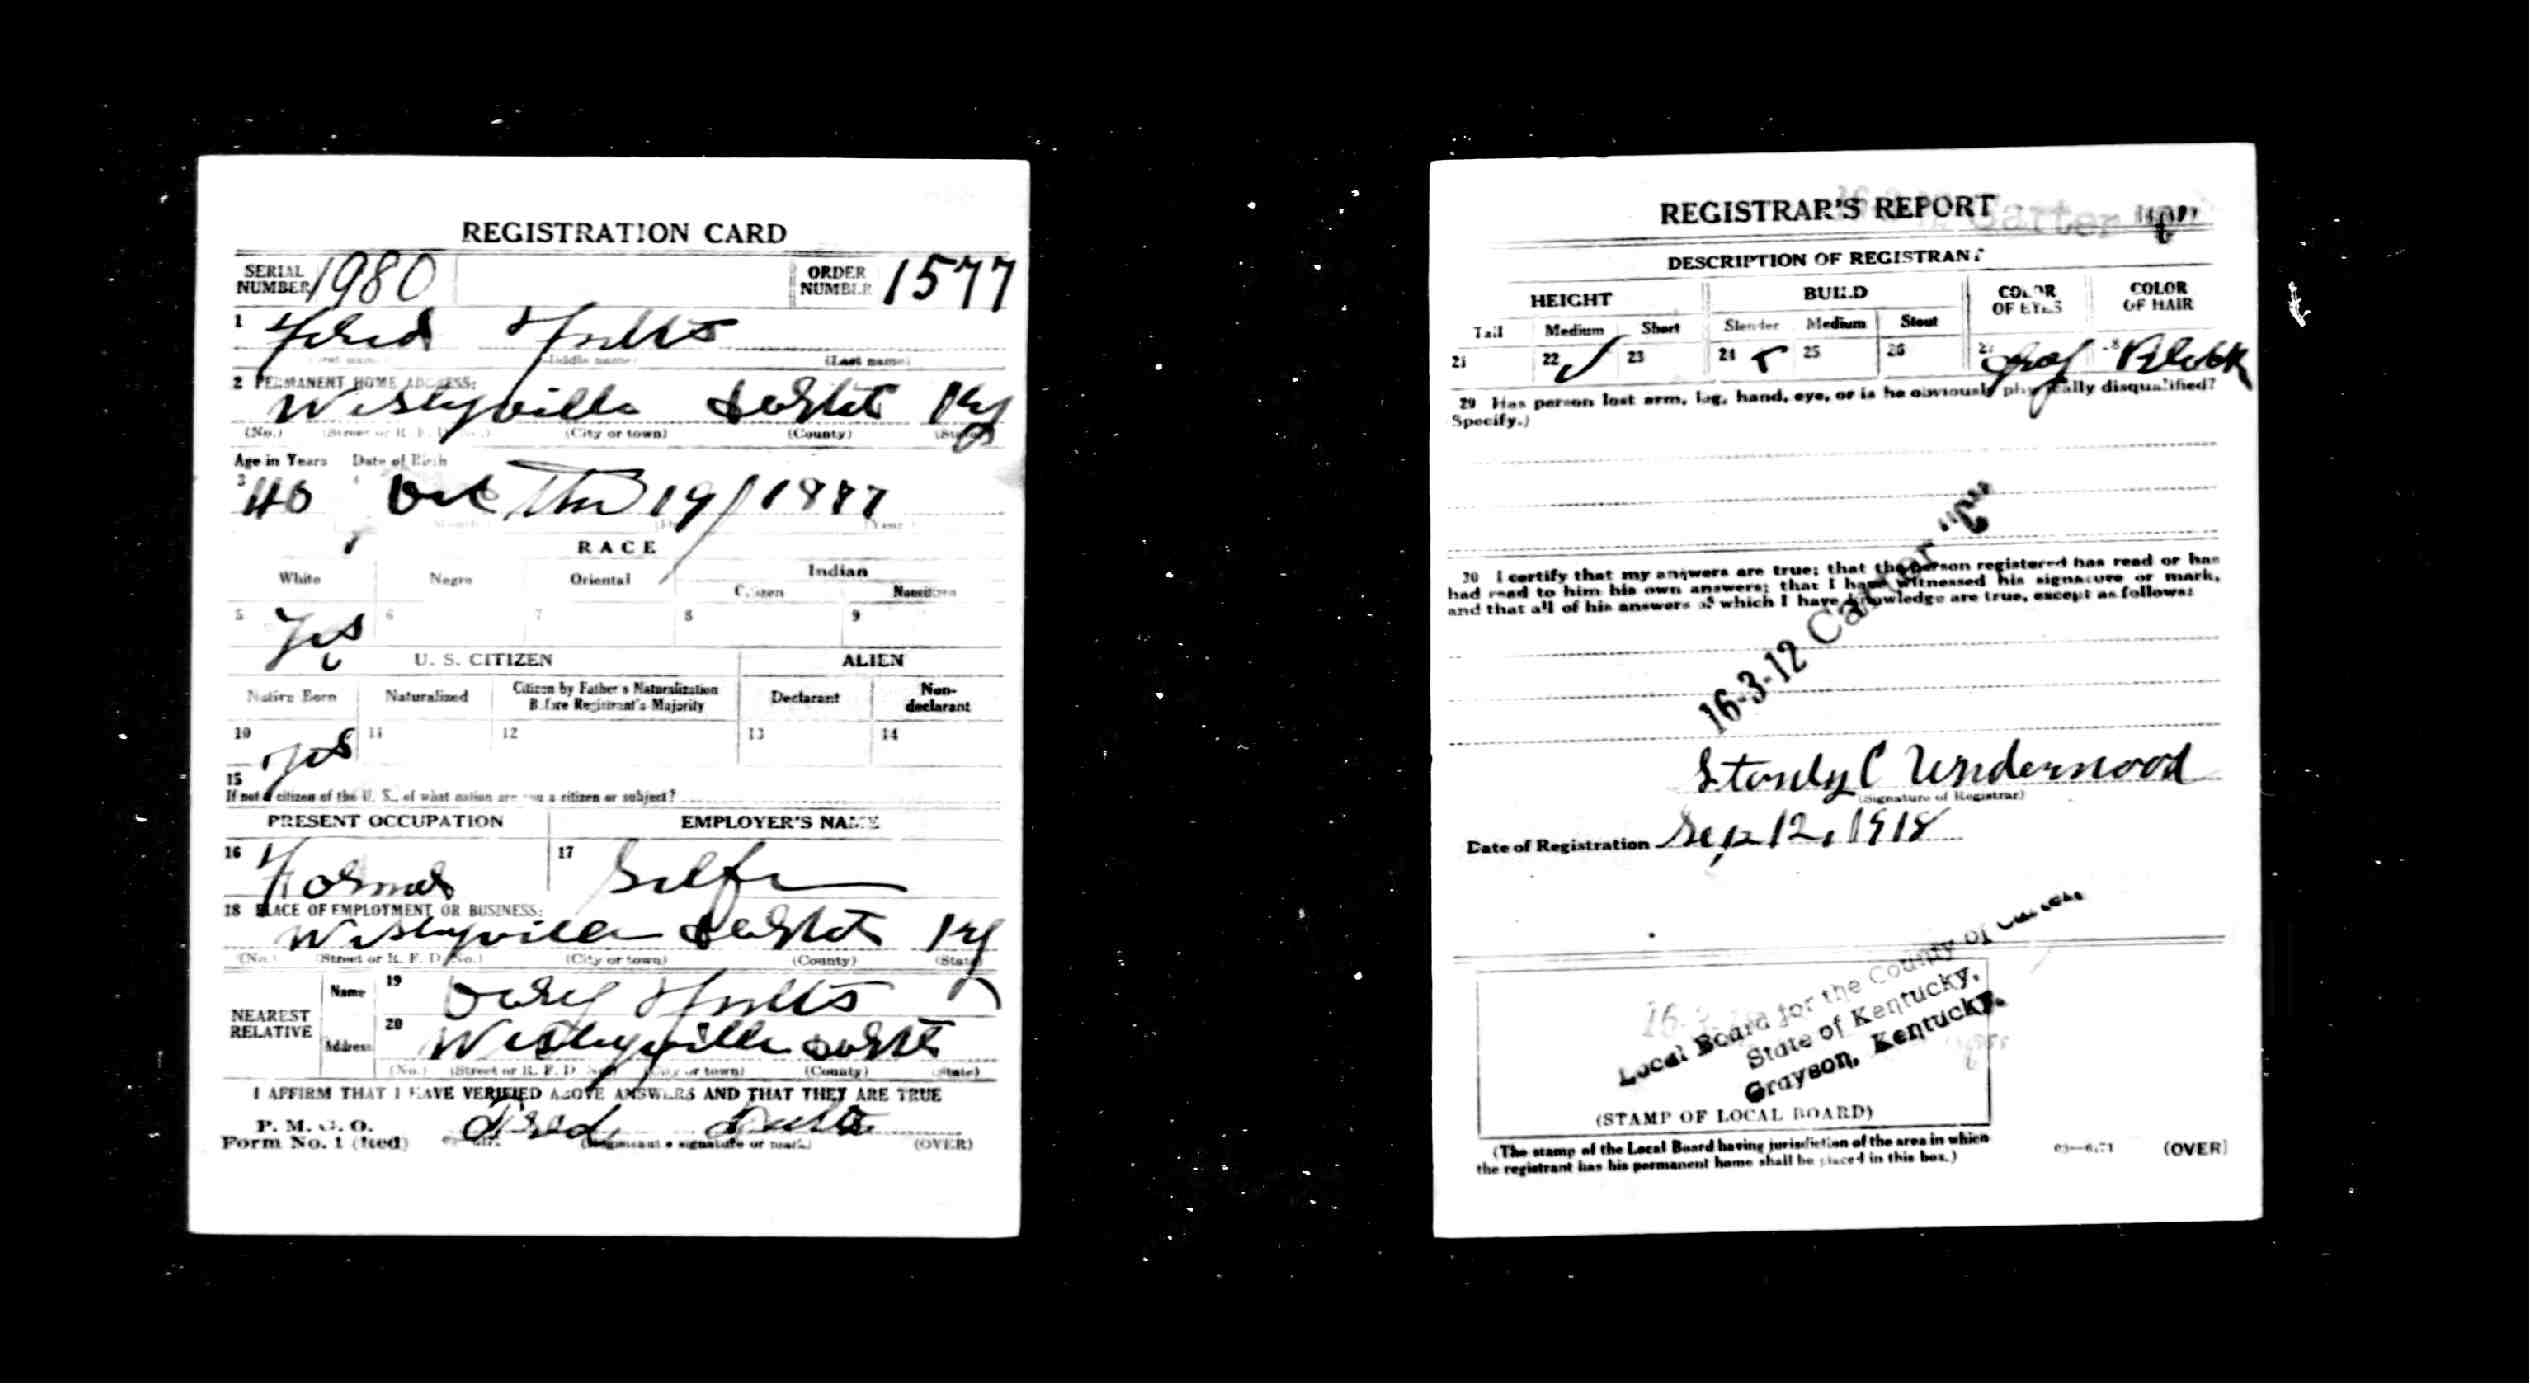 REGISTRATION CARD
SERIAL NUMBER 1980 ORDER NUMBER 1577
1 Fred Fults
(Middle name) (Last name)
2 PERMANENT HOME ADDRESS:
Wesleyville Ky
(No.) (Street or R. F. D. No.) (City or town) (County) (State)
Age in Years Date of Birth
3 40 4 19 / 1877
(Month) (Year)
RACE
White Negro Oriental Indian
Citizen Noncitizen
5 Yes 6 7 8 9
U. S. CITIZEN ALIEN
Native Born Naturalized Citizen by Father's Naturalization Before Registrant's Majority Declarant Non-declarant
10 Yes 11 12 13 14
15
If not a citizen of the U. S., of what nation are you a citizen or subject?
PRESENT OCCUPATION EMPLOYER'S NAME
16 Farmer 17 Self
18 PLACE OF EMPLOYMENT OR BUSINESS:
Wesleyville Ky
(No.) (Street or R. F. D. No.) (City or town) (County) (State)
NEAREST RELATIVE Name 19 Fults
Address 20 Wesleyville
(No.) (Street or R. F. D. No.) (City or town) (County) (State)
I AFFIRM THAT I HAVE VERIFIED ABOVE ANSWERS AND THAT THEY ARE TRUE
P. M. G. O.
Form No. 1 (Red) Fred Fults
(Registrant's signature or mark) (OVER)
REGISTRAR'S REPORT
16-3-12 Carter "C"
DESCRIPTION OF REGISTRANT
HEIGHT BUILD COLOR OF EYES COLOR OF HAIR
Tall Medium Short Slender Medium Stout
21 22 ✓ 23 24 ✓ 25 26 27 Gray 28 Black
29 Has person lost arm, leg, hand, eye, or is he obviously physically disqualified?
Specify.)
30 I certify that my answers are true; that the person registered has read or has
had read to him his own answers; that I have witnessed his signature or mark,
and that all of his answers of which I have knowledge are true, except as follows:
16-3-12 Carter "C"
Stanley C Underwood
(Signature of Registrar)
Date of Registration Sep 12, 1918
Local Board for the County of Carter
State of Kentucky,
Grayson, Kentucky.
(STAMP OF LOCAL BOARD)
(The stamp of the Local Board having jurisdiction of the area in which
the registrant has his permanent home shall be placed in this box.)
03—6171 (OVER)